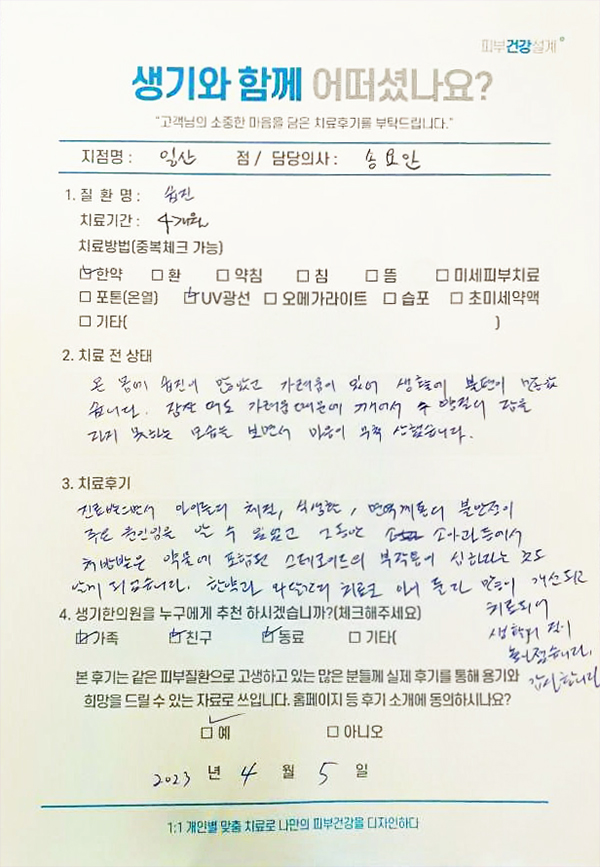 피부건강설계
생기와 함께 어떠셨나요?
"고객님의 소중한 마음을 담은 치료후기를 부탁드립니다."
지점명 : 일산 점 / 담당의사 : 송요안
1. 질 환 명 : 습진
치료기간 : 4개월
치료방법(중복체크 가능)
☑한약 □ 환 □ 약침 □ 침 □ 뜸 □ 미세피부치료
□ 포톤(온열) ☑UV광선 □ 오메가라이트 □ 습포 □ 초미세약액
□ 기타( )
2. 치료 전 상태
온 몸에 습진이 많았고 가려움이 있어 생활에 불편이 많았
습니다. 잠잘 때도 가려움때문에 깨어서 수 잠을
자지 못하는 모습을 보면서 마음이 무척 상했습니다.
3. 치료후기
진료받으면서 아이들의 체질, 식생활, 면역계통의 불안정이
주은 원인임을 알 수 있었고 그동안 소아과등에서
처방받은 약물에 포함된 스테로이드의 부작용이 심하다는 것도
알게 되었습니다. 한약과 치료로 아이 둘 다 많이 개선되고
4. 생기한의원을 누구에게 추천 하시겠습니까?(체크해주세요)
☑가족 ☑친구 ☑동료 □ 기타(
치료되어
생활의 질이
높아졌습니다.
감사합니다
본 후기는 같은 피부질환으로 고생하고 있는 많은 분들께 실제 후기를 통해 용기와
희망을 드릴 수 있는 자료로 쓰입니다. 홈페이지 등 후기 소개에 동의하시나요?
☑ 예 □ 아니오
2023 년 4 월 5 일
1:1 개인별 맞춤 치료로 나만의 피부건강을 디자인하다